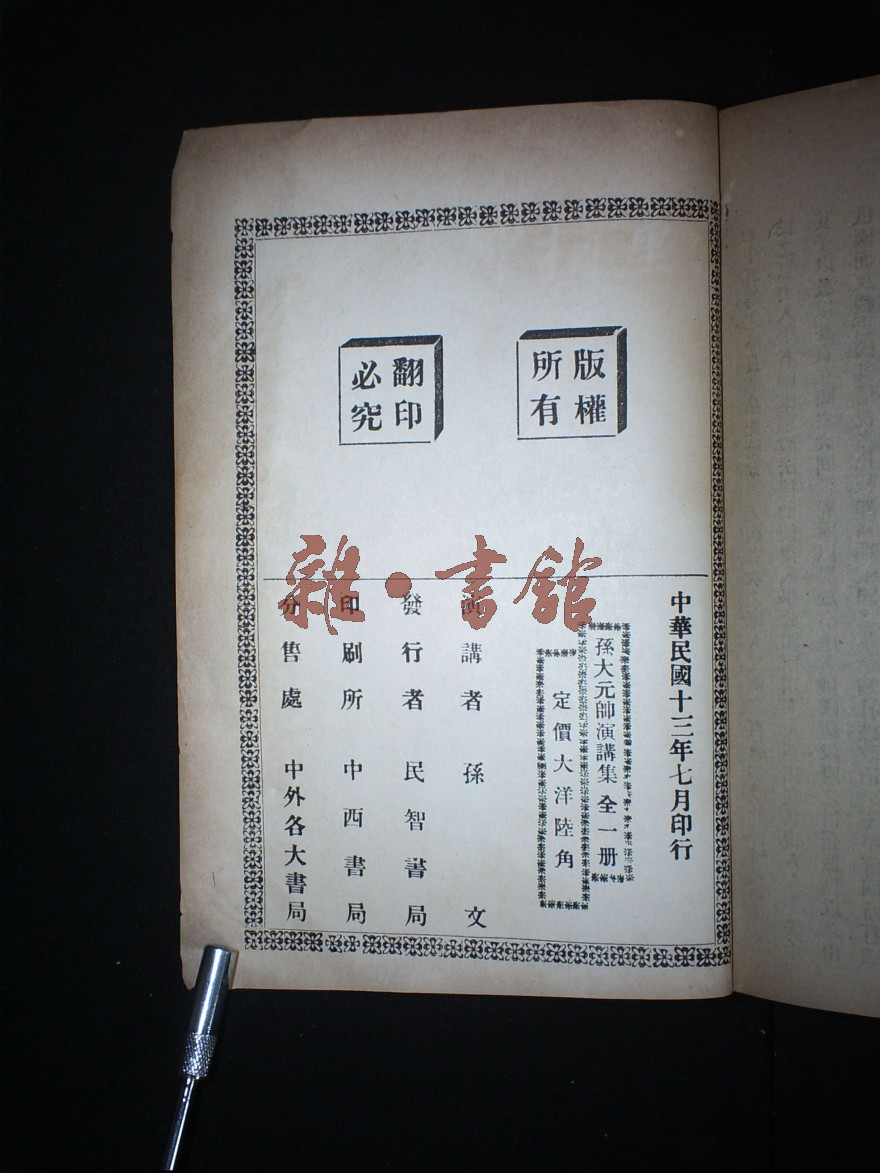 版權
所有
翻印
必究
中華民國十三年七月印行
孫大元帥演講集 全一册
定價大洋陸角
演講者 孫文
發行者 民智書局
印刷所 中西書局
分售處 中外各大書局
雜·書館